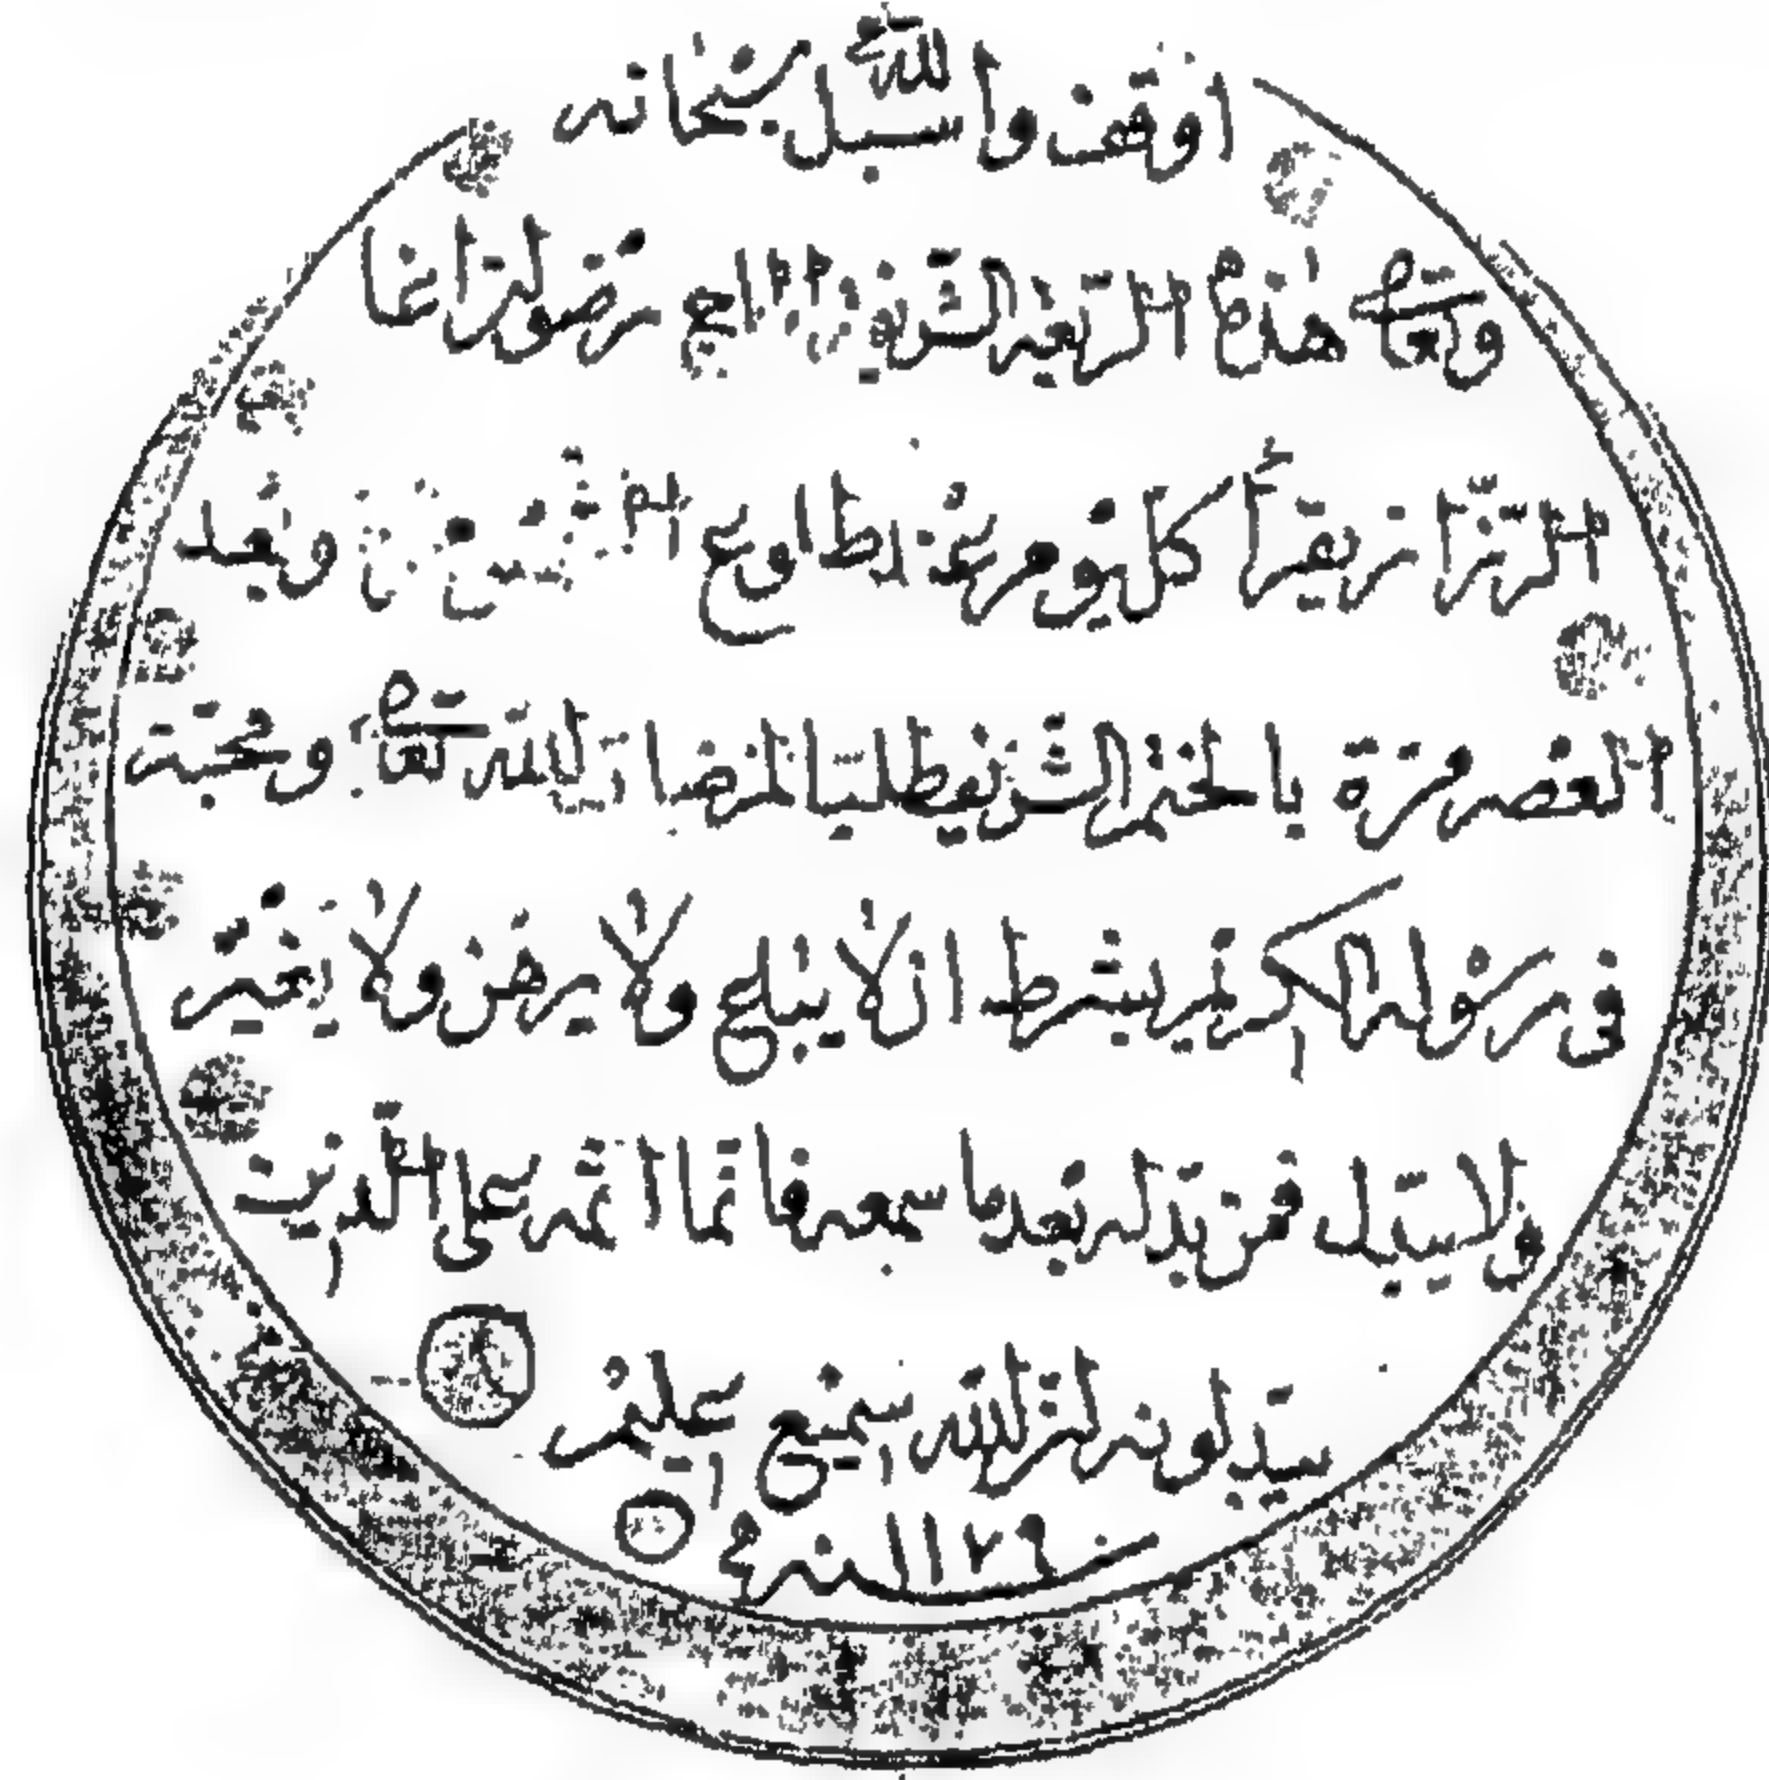 اوقف واسبل لله سبحانه
وتعالى هذه الربعه الشريفه الحاج رضوان اغا
الرزاز يقرأ كل يوم عند طلوع الشمس وبعد
العصر مرة بالختم الشريف طلبا لمرضات الله تعالى ومحبة
في رسوله الكريم بشرط ان لا يباع ولا يرهن ولا يغير
ولا يبدل فمن بدله بعدما سمعه فانما اثمه على الذين
يبدلونه ان الله سميع عليم
سنه ١١٧٩